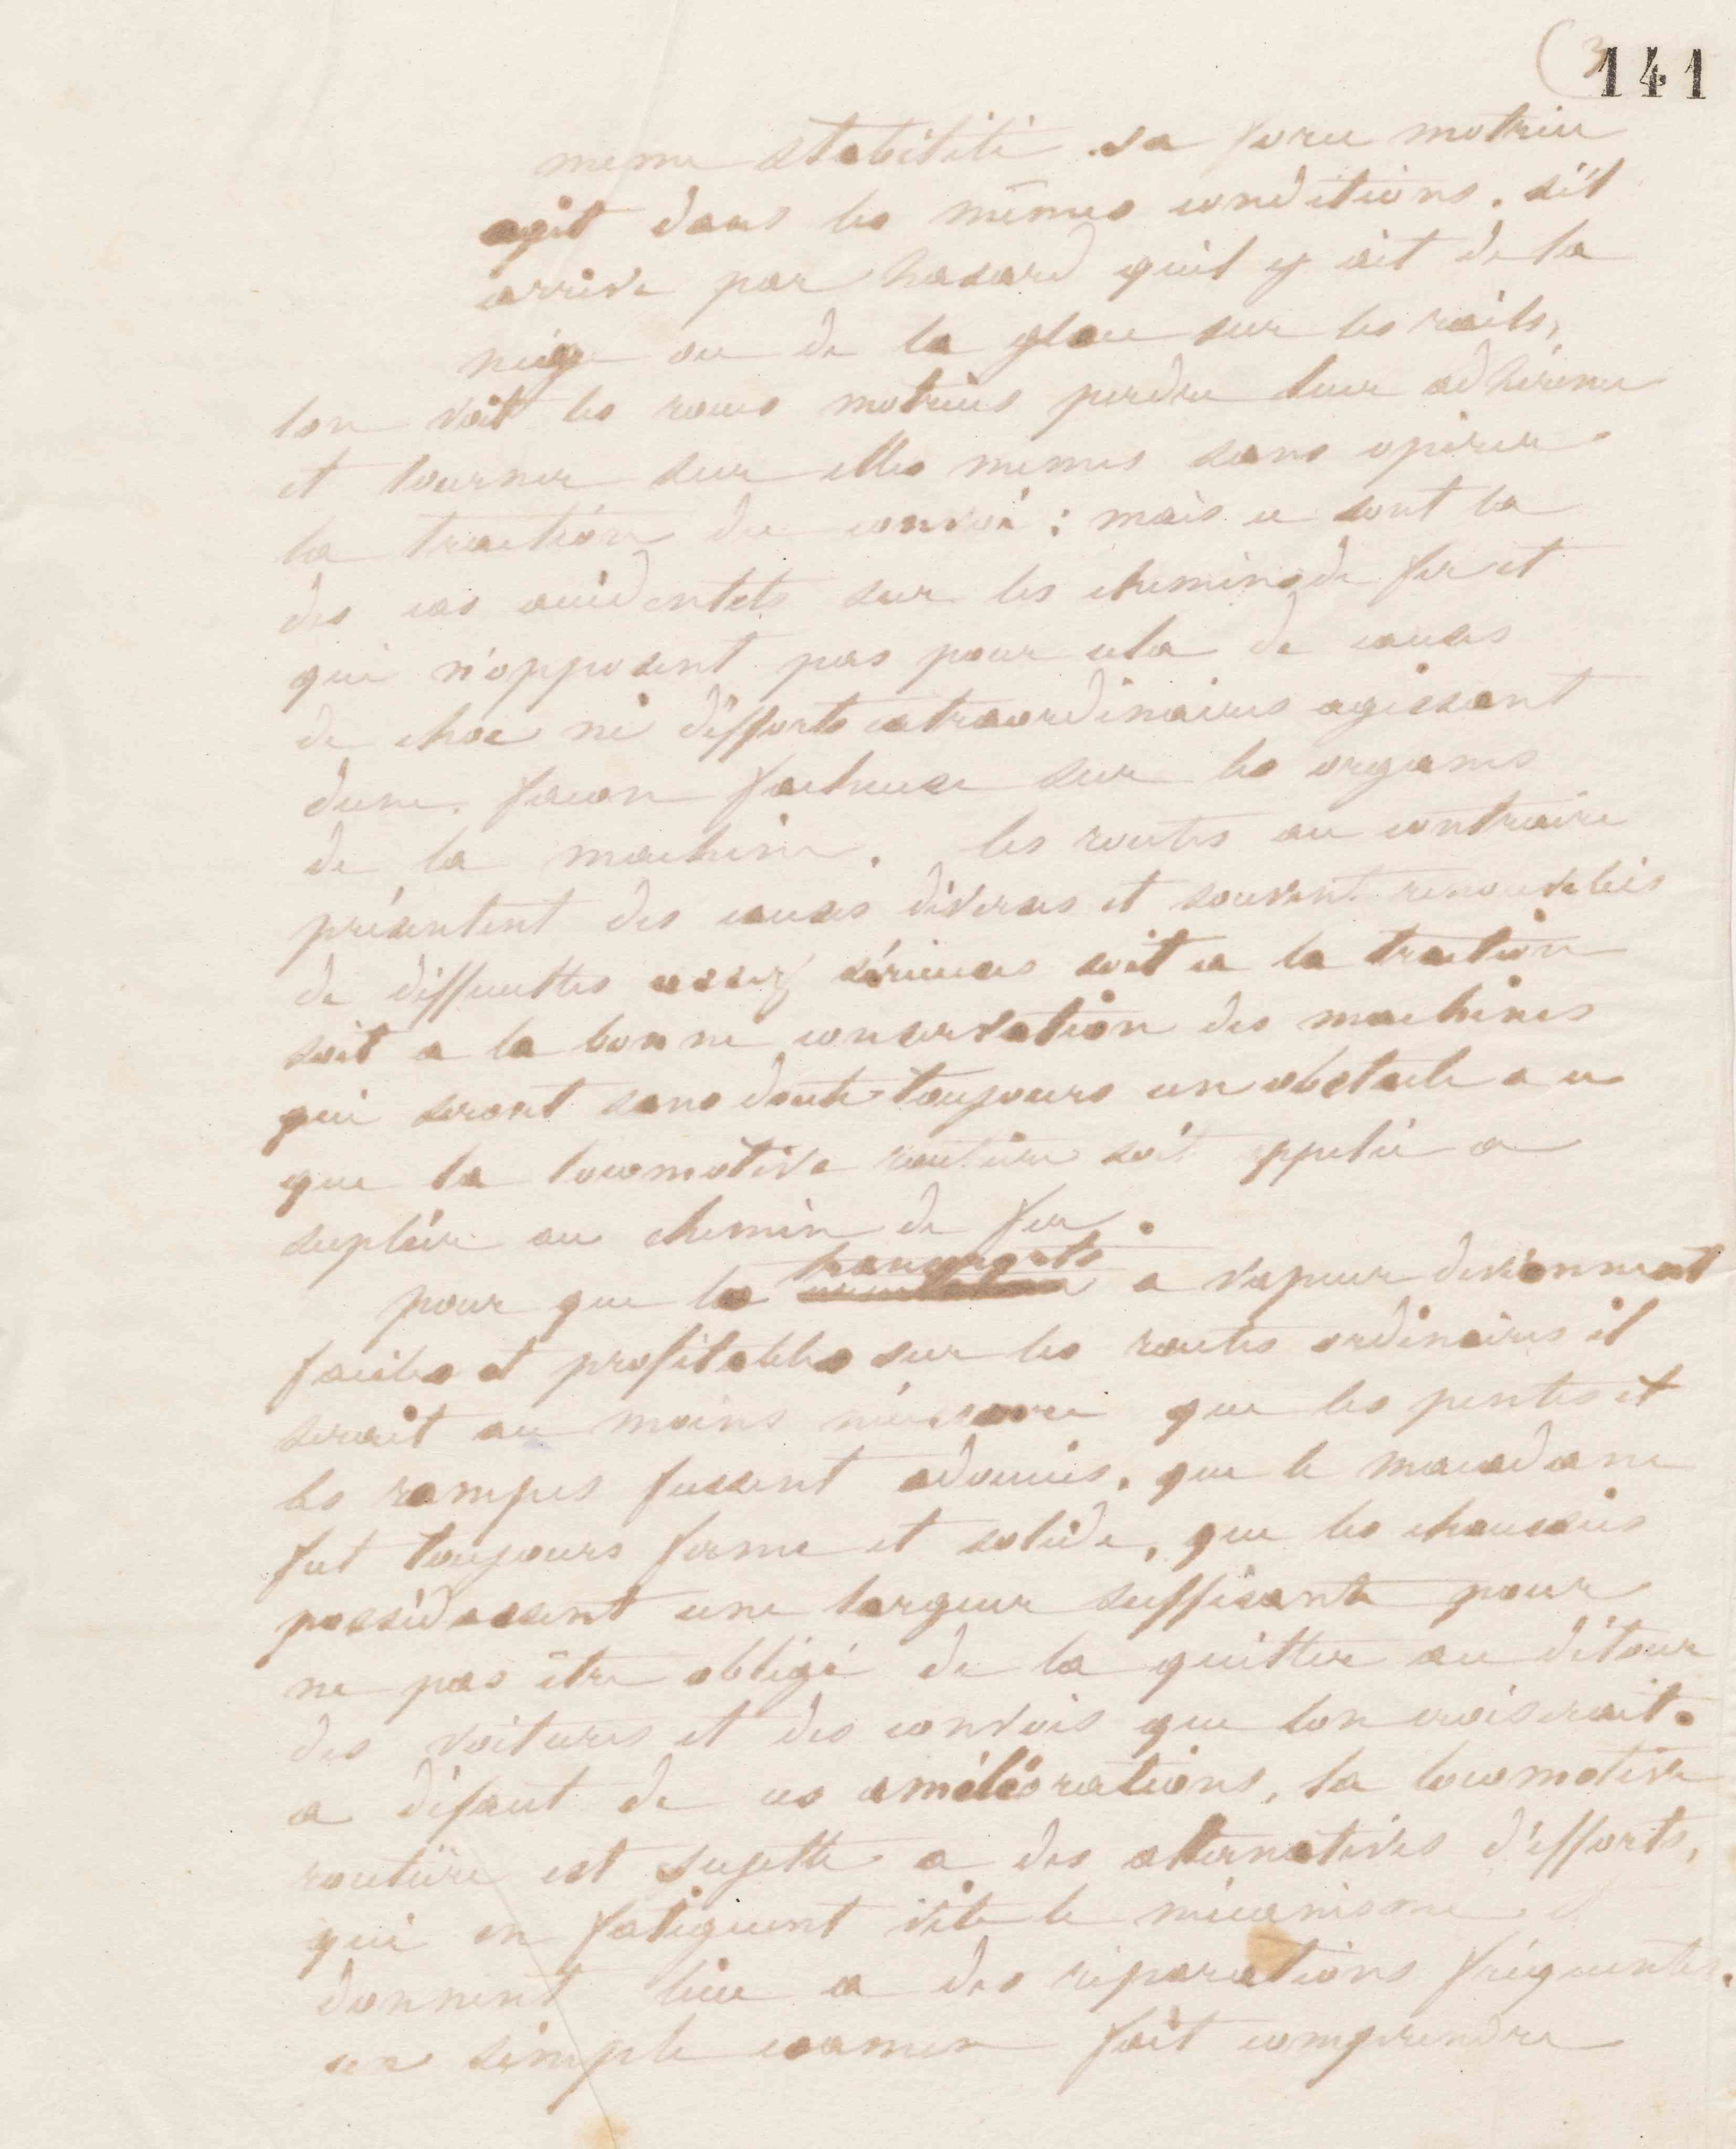 (3
141
meme stabilité. sa force motrice
agit dans les mêmes conditions. s'il
arrive par hasard quil y ait de la
neige ou de la glace sur les rails,
lon voit les roues motrices perdre leur adhérence
et tourner sur elles memes sans opérer
la traction du convoi : mais ce sont la
des cas accidentels sur les chemins de fer et
qui n'opposent pas pour cela de causes
de choc ni d'éfforts extraordinaires agissant
dune facon facheuse sur les organes
de la machine. les routes au contraire
présentent des causes diverses et souvent renouvelées
de difficultes assez sérieuses soit a la traction
soit a la bonne conservation des machines
qui seront sans doute toujours un obstacle a ce
que la locomotive routière soit appelée a
supléer au chemin de fer.
transports
pour que les a vapeur deviennent
faciles et profitables sur les routes ordinaires il
serait au moins nécessaire que les pentes et
les rampes fussent adoucies, que le macadam
fut toujours ferme et solide, que les chaussées
possédassent une largeur suffisante pour
ne pas être obligé de la quitter au détour
des voitures et des convois que lon croiserait.
a défaut de ces améliorations, la locomotive
routière est sujette a des alternatives d'éfforts,
qui en fatiguent vite le mécanisme et
donnent lieu a des réparations fréquentes.
un simple examen fait comprendre